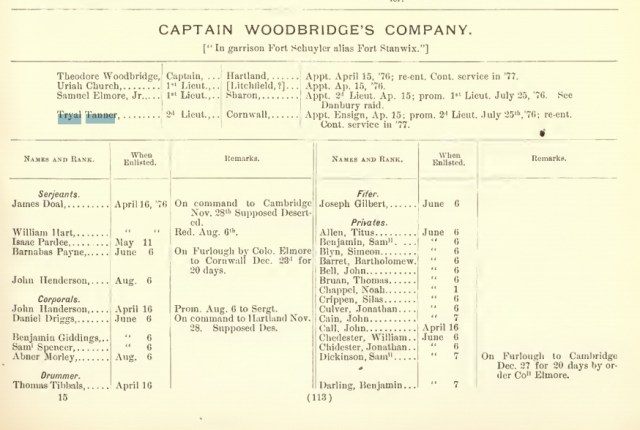 CAPTAIN WOODBRIDGE'S COMPANY.
["In garrison Fort Schuyler alias Fort Stanwix."]
Theodore Woodbridge, Captain, ... Hartland, ...... Appt. April 15, '76; re-ent. Cont. service in '77.
Uriah Church, ....... 1st Lieut., .. [Litchfield,?] ... Appt. Ap. 15, '76.
Samuel Elmore, Jr., ... 1st Lieut., .. Sharon, ........ Appt. 2d Lieut. Ap. 15; prom. 1st Lieut. July 25, '76. See
Danbury raid.
Tryal Tanner, ........ 2d Lieut., .. Cornwall, ...... Appt. Ensign, Ap. 15; prom. 2d Lieut. July 25th, '76; re-ent.
Cont. service in '77.
NAMES AND RANK. When Enlisted. Remarks.
Serjeants.
James Doal, ........ April 16, '76 On command to Cambridge
Nov. 28th Supposed Desert-
ed.
William Hart, ...... " " Red. Aug. 6th.
Isaac Pardee, ....... May 11
Barnabas Payne, .... June 6 On Furlough by Colo. Elmore
to Cornwall Dec. 23d for
20 days.
John Henderson, .... Aug. 6
Corporals.
John Handerson, .... April 16 Prom. Aug. 6 to Sergt.
Daniel Driggs, ...... June 6 On command to Hartland Nov.
28. Supposed Des.
Benjamin Giddings, .. " 6
Saml Spencer, ...... " 6
Abner Morley, ...... Aug. 6
Drummer.
Thomas Tibbals, .... April 16
NAMES AND RANK. When Enlisted. Remarks.
Fifer.
Joseph Gilbert, ...... June 6
Privates.
Allen, Titus ......... June 6
Benjamin, Samll. ... " 6
Blyn, Simeon ........ " 6
Barret, Bartholomew. " 6
Bell, John .......... " 6
Bruan, Thomas ...... " 6
Chappel, Noah ...... " 1
Crippen, Silas ....... " 6
Culver, Jonathan .... " 6
Cain, John .......... " 7
Call, John ........... April 16
Chedester, William .. June 6
Chidester, Jonathan. . " 6
Dickinson, Samll .... " 7 On Furlough to Cambridge
Dec. 27 for 20 days by or-
der Coll Elmore.
Darling, Benjamin ... " 7
15 (113)